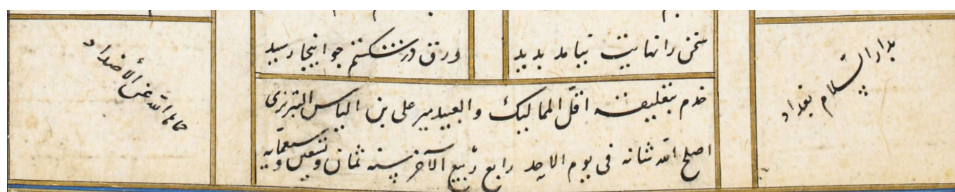 سخن را نهایت نیامد بدید
ورق در شکستم جو اینجا رسید
خدم بتعلیقه اقلّ الممالیک والعبید میر علی بن الیاس التبریزی
اصلح الله شانه فی یوم الاحد رابع ربیع الآخر سنه ثمان وتسعین وسبعمایه
بدار السّلام بغداد
حماها الله عن الأضداد